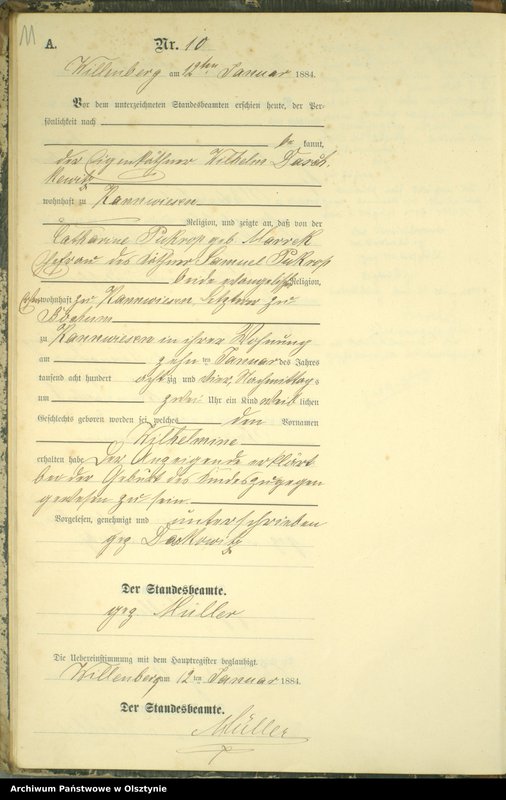 11
A.
Nr. 10
Willenberg am 12ten Januar 1884.
Vor dem unterzeichneten Standesbeamten erschien heute, der Per-
sönlichkeit nach
be kannt,
der Eigenkäthner Wilhelm Dasch
kewitz
wohnhaft zu Kannwiesen
Religion, und zeigte an, daß von der
Catharine Pukrop geb Marrek
Ehefrau des Käthner Samuel Pukrop
beide evangelischer Religion,
wohnhaft zu Kannwiesen, letzterer zu
zu Kannwiesen in ihrer Wohnung
am zehn ten Januar des Jahres
tausend acht hundert achtzig und vier, Nachmittags
um zwei Uhr ein Kind weiblichen
Geschlechts geboren worden sei, welches den Vornamen
Wilhelmine
erhalten habe Der Anzeigende erklärt
bei der Geburt des Kindes zugegen
gewesen zu sein.
Vorgelesen, genehmigt und unterschrieben
gez Daskowitz
Der Standesbeamte.
gez Müller
Die Uebereinstimmung mit dem Hauptregister beglaubigt.
Willenberg am 12 ten Januar 1884.
Der Standesbeamte.
Müller
Archiwum Państwowe w Olsztynie